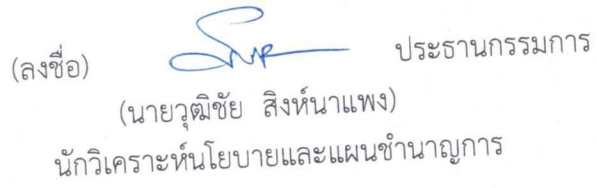 (ลงชื่อ) ประธานกรรมการ
(นายวุฒิชัย สิงห์นาแพง)
นักวิเคราะห์นโยบายและแผนชำนาญการ